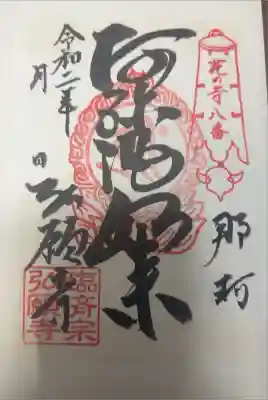 花の寺八番
那珂
阿弥陀如来
令和二年
月 日
弘願寺
臨済宗
弘願寺